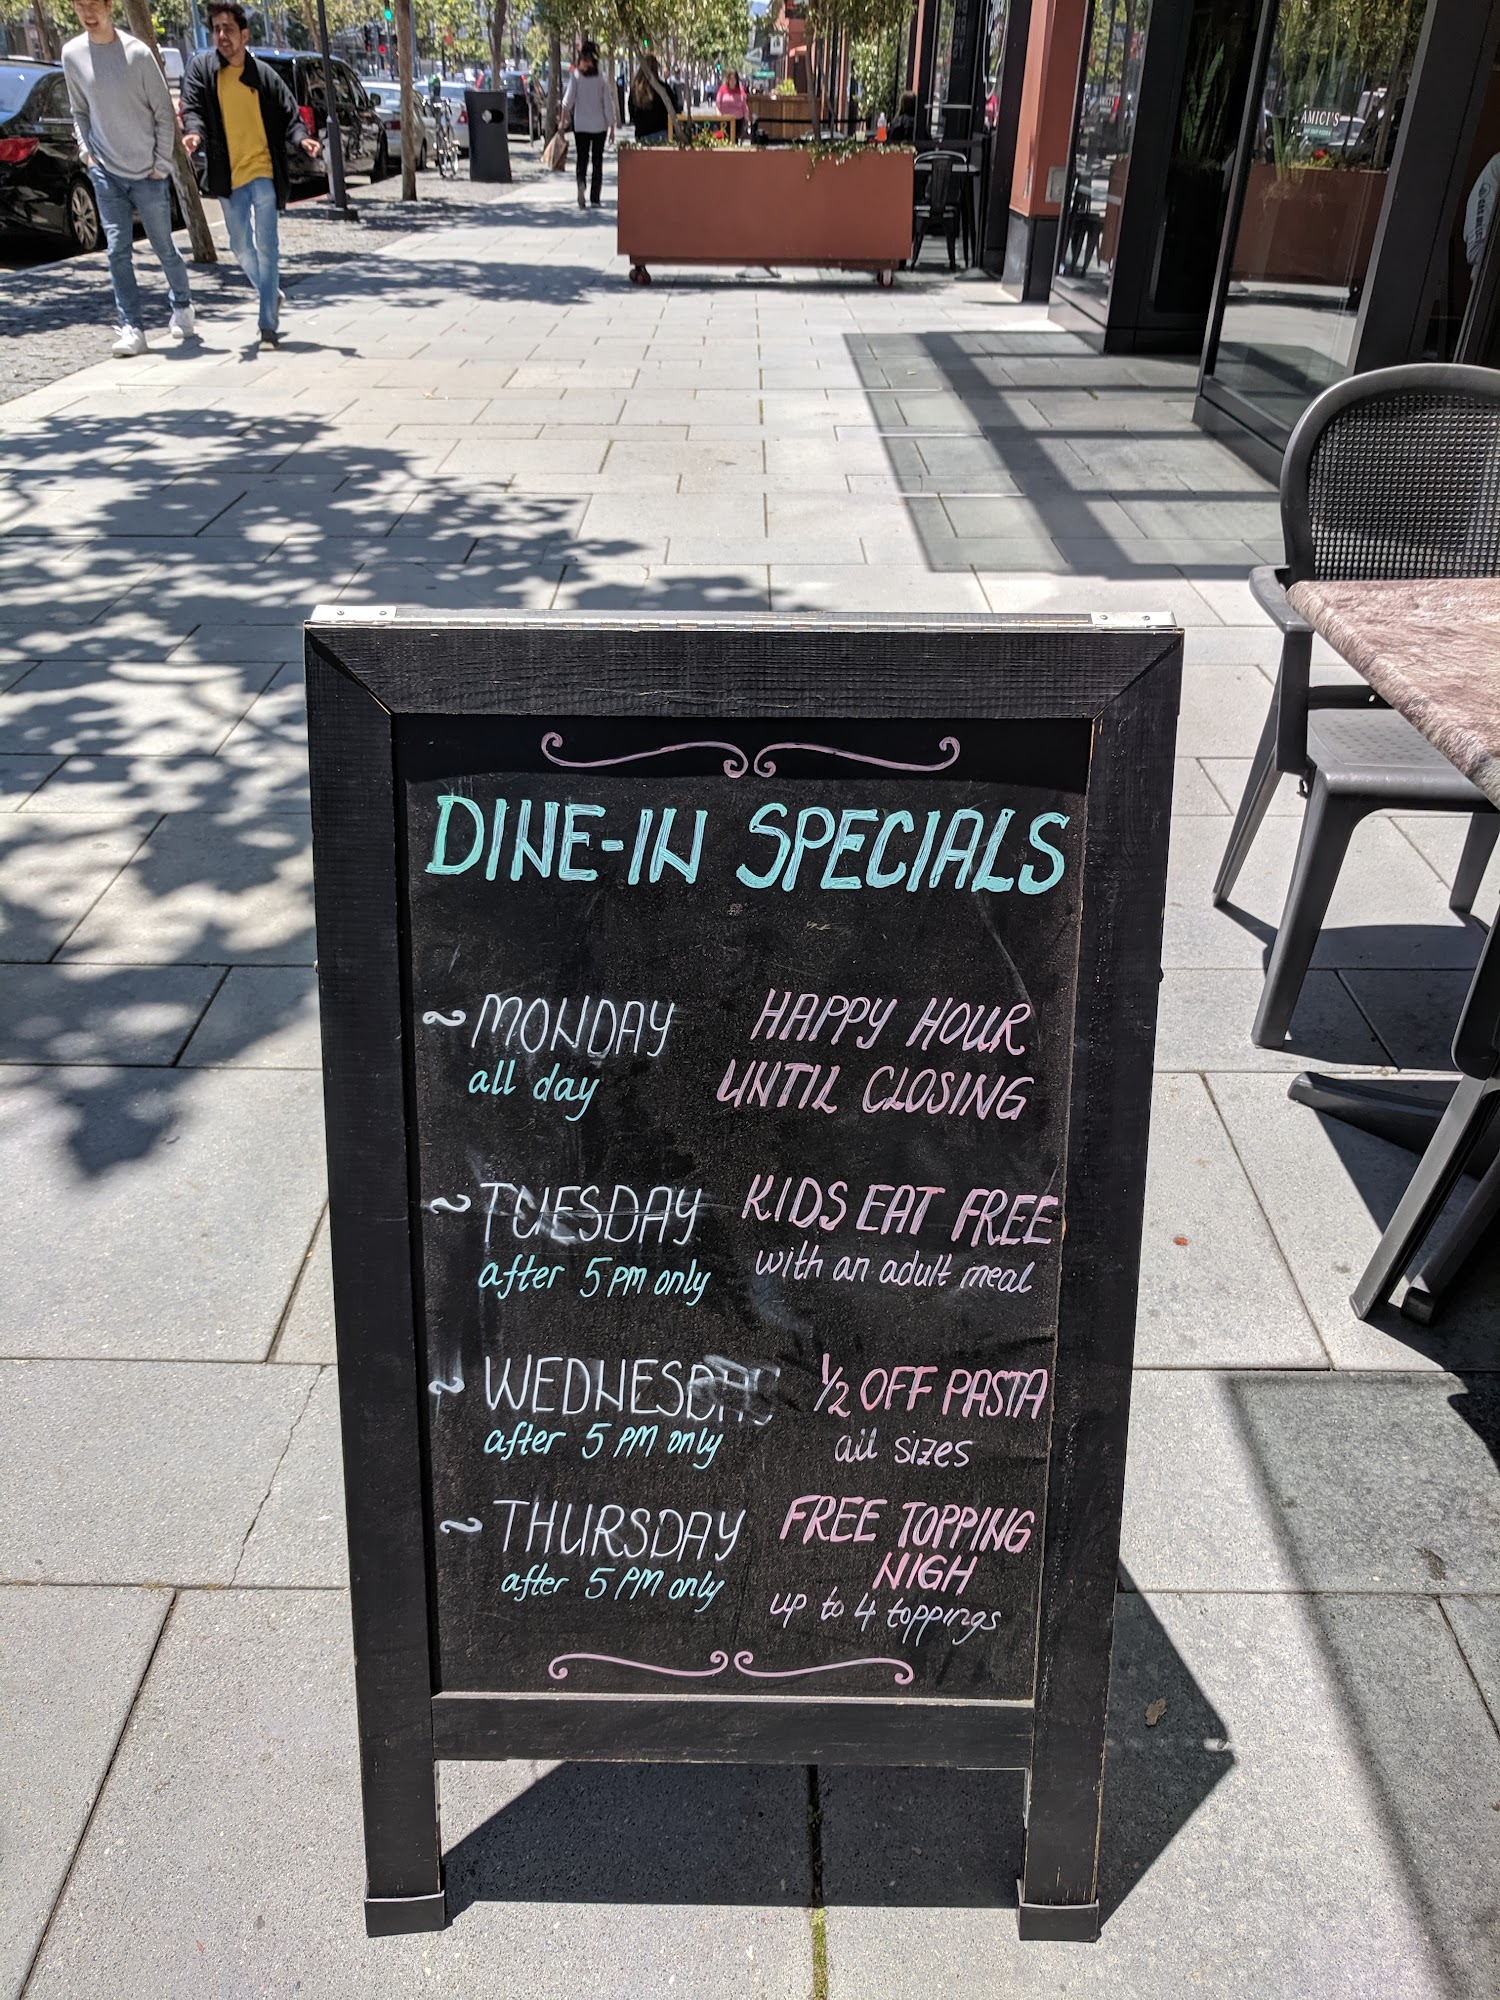 AMICI'S
DINE-IN SPECIALS
~ MONDAY
all day
HAPPY HOUR
UNTIL CLOSING
~ TUESDAY
after 5 PM only
KIDS EAT FREE
with an adult meal
~ WEDNESDAY
after 5 PM only
1/2 OFF PASTA
all sizes
~ THURSDAY
after 5 PM only
FREE TOPPING
NIGH
up to 4 toppings